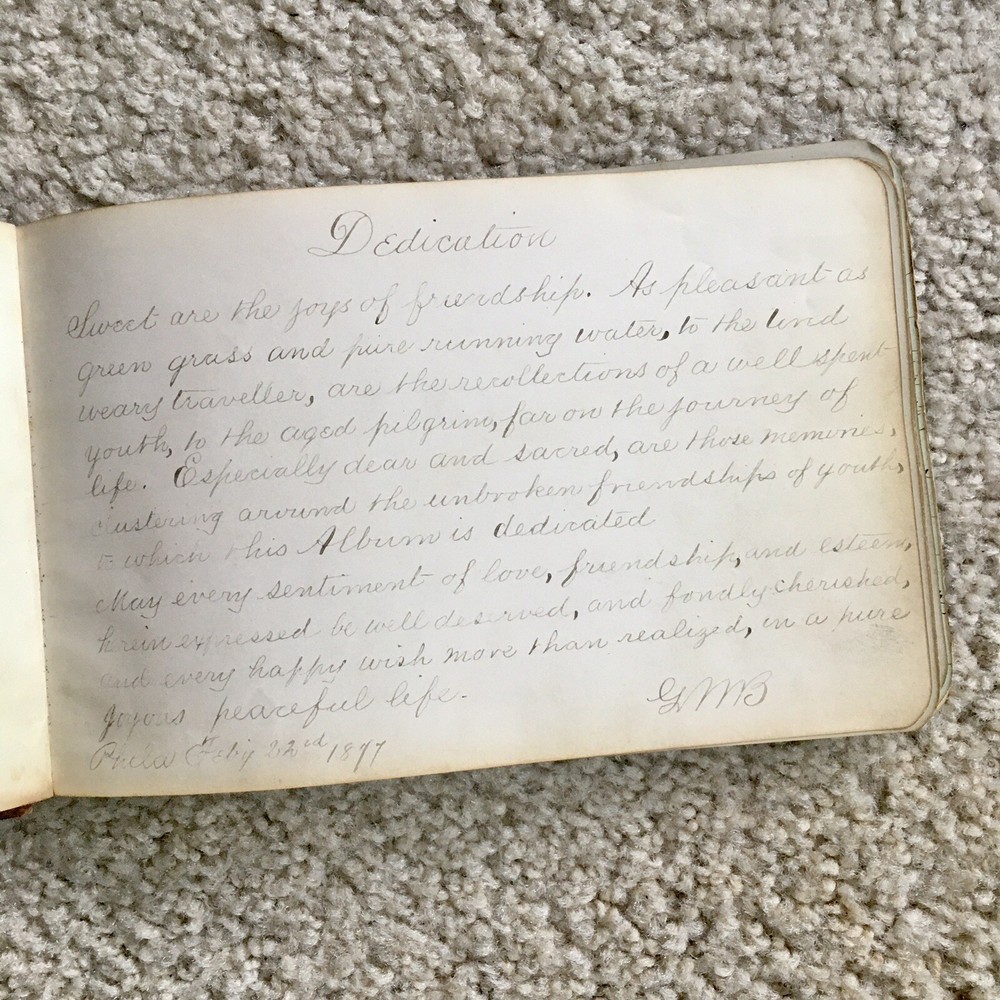 Dedication
Sweet are the joys of friendship. As pleasant as
green grass and pure running water, to the tired
weary traveller, are the recollections of a well spent
youth, to the aged pilgrim, far on the journey of
life. Especially dear and sacred, are those memories,
clustering around the unbroken friendships of youth,
to which this Album is dedicated
May every sentiment of love, friendship, and esteem,
herein expressed be well deserved, and fondly cherished,
and every happy wish more than realized, in a pure
joyous peaceful life.
GMB
Phila Feby 22nd 1877